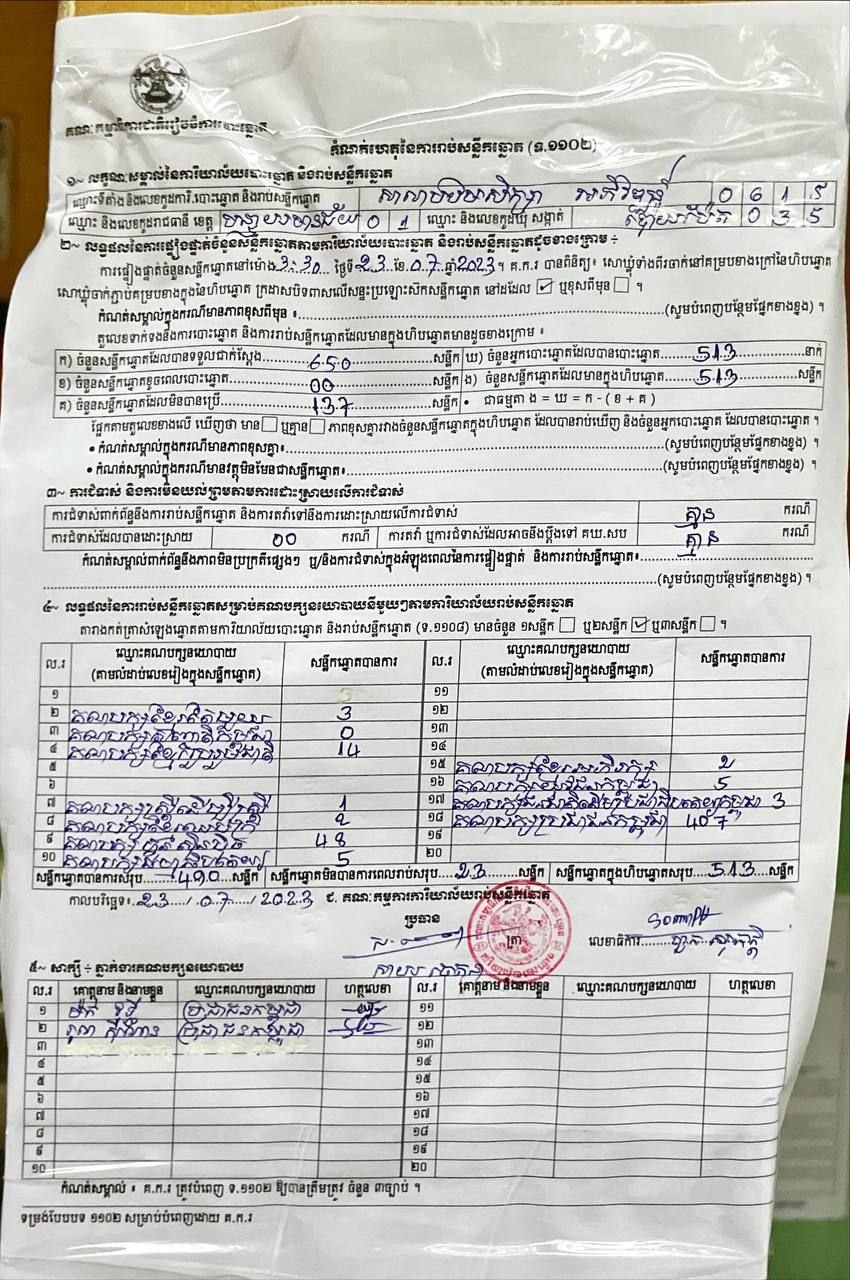 គណៈកម្មាធិការជាតិរៀបចំការបោះឆ្នោត
កំណត់ហេតុនៃការរាប់សន្លឹកឆ្នោត (ទ.១១០២)
១~ លក្ខណៈសម្គាល់នៃការិយាល័យបោះឆ្នោត និងរាប់សន្លឹកឆ្នោត
ឈ្មោះទីតាំង និងលេខកូដការិ.បោះឆ្នោត និងរាប់សន្លឹកឆ្នោត 0 6 1 5
ឈ្មោះ និងលេខកូដរាជធានី ខេត្ត បន្ទាយមានជ័យ 0 1 ឈ្មោះ និងលេខកូដឃុំ សង្កាត់ ប៉ោយប៉ែត 0 3 5
២~ លទ្ធផលនៃការផ្ទៀងផ្ទាត់ចំនួនសន្លឹកឆ្នោតតាមការិយាល័យបោះឆ្នោត និងរាប់សន្លឹកឆ្នោតដូចខាងក្រោម ÷
ការផ្ទៀងផ្ទាត់ចំនួនសន្លឹកឆ្នោតនៅម៉ោង 3:30 ថ្ងៃទី 23 ខែ 07 ឆ្នាំ 2023 ។ គ.ក.រ បានពិនិត្យ៖ សោឃ្លុំទាំងពីរចាក់នៅគម្របខាងក្រៅនៃហិបឆ្នោត
សោឃ្លុំចាក់ភ្ជាប់គម្របខាងក្នុងនៃហិបឆ្នោត ក្រដាសបិទពាសលើសន្ទះប្រឡោះស៊កសន្លឹកឆ្នោត នៅដដែល ☑ ឬខុសពីមុន ☐ ។
កំណត់សម្គាល់ក្នុងករណីមានភាពខុសពីមុន ៖ (សូមបំពេញបន្ថែមផ្នែកខាងខ្នង) ។
តួលេខទាក់ទងនឹងការបោះឆ្នោត និងការរាប់សន្លឹកឆ្នោតដែលមានក្នុងហិបឆ្នោតមានដូចខាងក្រោម ៖
ក) ចំនួនសន្លឹកឆ្នោតដែលបានទទួលជាក់ស្តែង 650 សន្លឹក ឃ) ចំនួនអ្នកបោះឆ្នោតដែលបានបោះឆ្នោត 513 នាក់
ខ) ចំនួនសន្លឹកឆ្នោតខូចពេលបោះឆ្នោត 00 សន្លឹក ង) ចំនួនសន្លឹកឆ្នោតដែលមានក្នុងហិបឆ្នោត 513 សន្លឹក
គ) ចំនួនសន្លឹកឆ្នោតដែលមិនបានប្រើ 137 សន្លឹក • ជាធម្មតា ង = ឃ = ក - ( ខ + គ )
ផ្អែកតាមតួលេខខាងលើ ឃើញថា មាន ☐ ឬគ្មាន ☐ ភាពខុសគ្នារវាងចំនួនសន្លឹកឆ្នោតក្នុងហិបឆ្នោត ដែលបានរាប់ឃើញ និងចំនួនអ្នកបោះឆ្នោត ដែលបានបោះឆ្នោត ។
• កំណត់សម្គាល់ក្នុងករណីមានភាពខុសគ្នា៖ (សូមបំពេញបន្ថែមផ្នែកខាងខ្នង) ។
• កំណត់សម្គាល់ក្នុងករណីមានវត្ថុមិនមែនជាសន្លឹកឆ្នោត៖ (សូមបំពេញបន្ថែមផ្នែកខាងខ្នង) ។
៣~ ការជំទាស់ និងការមិនយល់ព្រមតាមការដោះស្រាយលើការជំទាស់
ការជំទាស់ពាក់ព័ន្ធនឹងការរាប់សន្លឹកឆ្នោត និងការតវ៉ាទៅនឹងការដោះស្រាយលើការជំទាស់ គ្មាន ករណី
ការជំទាស់ដែលបានដោះស្រាយ 00 ករណី ការតវ៉ា ឬការជំទាស់ដែលអាចនឹងប្តឹងទៅ គឃ.សប គ្មាន ករណី
កំណត់សម្គាល់ពាក់ព័ន្ធនឹងភាពមិនប្រក្រតីផ្សេងៗ ឬ/និងការជំទាស់ក្នុងអំឡុងពេលនៃការផ្ទៀងផ្ទាត់ និងការរាប់សន្លឹកឆ្នោត៖
(សូមបំពេញបន្ថែមផ្នែកខាងខ្នង) ។
៤~ លទ្ធផលនៃការរាប់សន្លឹកឆ្នោតសម្រាប់គណបក្សនយោបាយនីមួយៗតាមការិយាល័យរាប់សន្លឹកឆ្នោត
តារាងកត់ត្រាសំឡេងឆ្នោតតាមការិយាល័យបោះឆ្នោត និងរាប់សន្លឹកឆ្នោត (ទ.១១០៨) មានចំនួន ១សន្លឹក ☐ ឬ២សន្លឹក ☑ ឬ៣សន្លឹក ☐ ។
ល.រ ឈ្មោះគណបក្សនយោបាយ (តាមលំដាប់លេខរៀងក្នុងសន្លឹកឆ្នោត) សន្លឹកឆ្នោតបានការ ល.រ ឈ្មោះគណបក្សនយោបាយ (តាមលំដាប់លេខរៀងក្នុងសន្លឹកឆ្នោត) សន្លឹកឆ្នោតបានការ
១ ១១
២ គណបក្សខ្មែរតែមួយ 3 ១២
៣ 0 ១៣
៤ គណបក្ស 14 ១៤
៥ ១៥ គណបក្សខ្មែរអភិរក្ស 2
៦ ១៦ គណបក្ស 5
៧ គណបក្សស្ត្រីដើម្បីស្ត្រី 1 ១៧ 3
៨ គណបក្ស 2 ១៨ គណបក្សប្រជាជនកម្ពុជា 407
៩ គណបក្សហ៊្វុនស៊ិនប៉ិច 48 ១៩
១០ គណបក្ស 5 ២០
សន្លឹកឆ្នោតបានការសរុប 490 សន្លឹក សន្លឹកឆ្នោតមិនបានការពេលរាប់សរុប 23 សន្លឹក សន្លឹកឆ្នោតក្នុងហិបឆ្នោតសរុប 513 សន្លឹក
កាលបរិច្ឆេទ៖ 23 / 07 / 2023 ជ. គណៈកម្មការការិយាល័យរាប់សន្លឹកឆ្នោត
ប្រធាន
ត្រា លេខាធិការ
៥~ សាក្សី ÷ ភ្នាក់ងារគណបក្សនយោបាយ
ល.រ គោត្តនាម និងនាមខ្លួន ឈ្មោះគណបក្សនយោបាយ ហត្ថលេខា ល.រ គោត្តនាម និងនាមខ្លួន ឈ្មោះគណបក្សនយោបាយ ហត្ថលេខា
១ ប្រជាជនកម្ពុជា ១១
២ ប្រជាជនកម្ពុជា ១២
៣ ១៣
៤ ១៤
៥ ១៥
៦ ១៦
៧ ១៧
៨ ១៨
៩ ១៩
១០ ២០
កំណត់សម្គាល់ ៖ គ.ក.រ ត្រូវបំពេញ ទ.១១០២ ឱ្យបានត្រឹមត្រូវ ចំនួន ៣ច្បាប់ ។
ទម្រង់បែបបទ ១១០២ សម្រាប់បំពេញដោយ គ.ក.រ